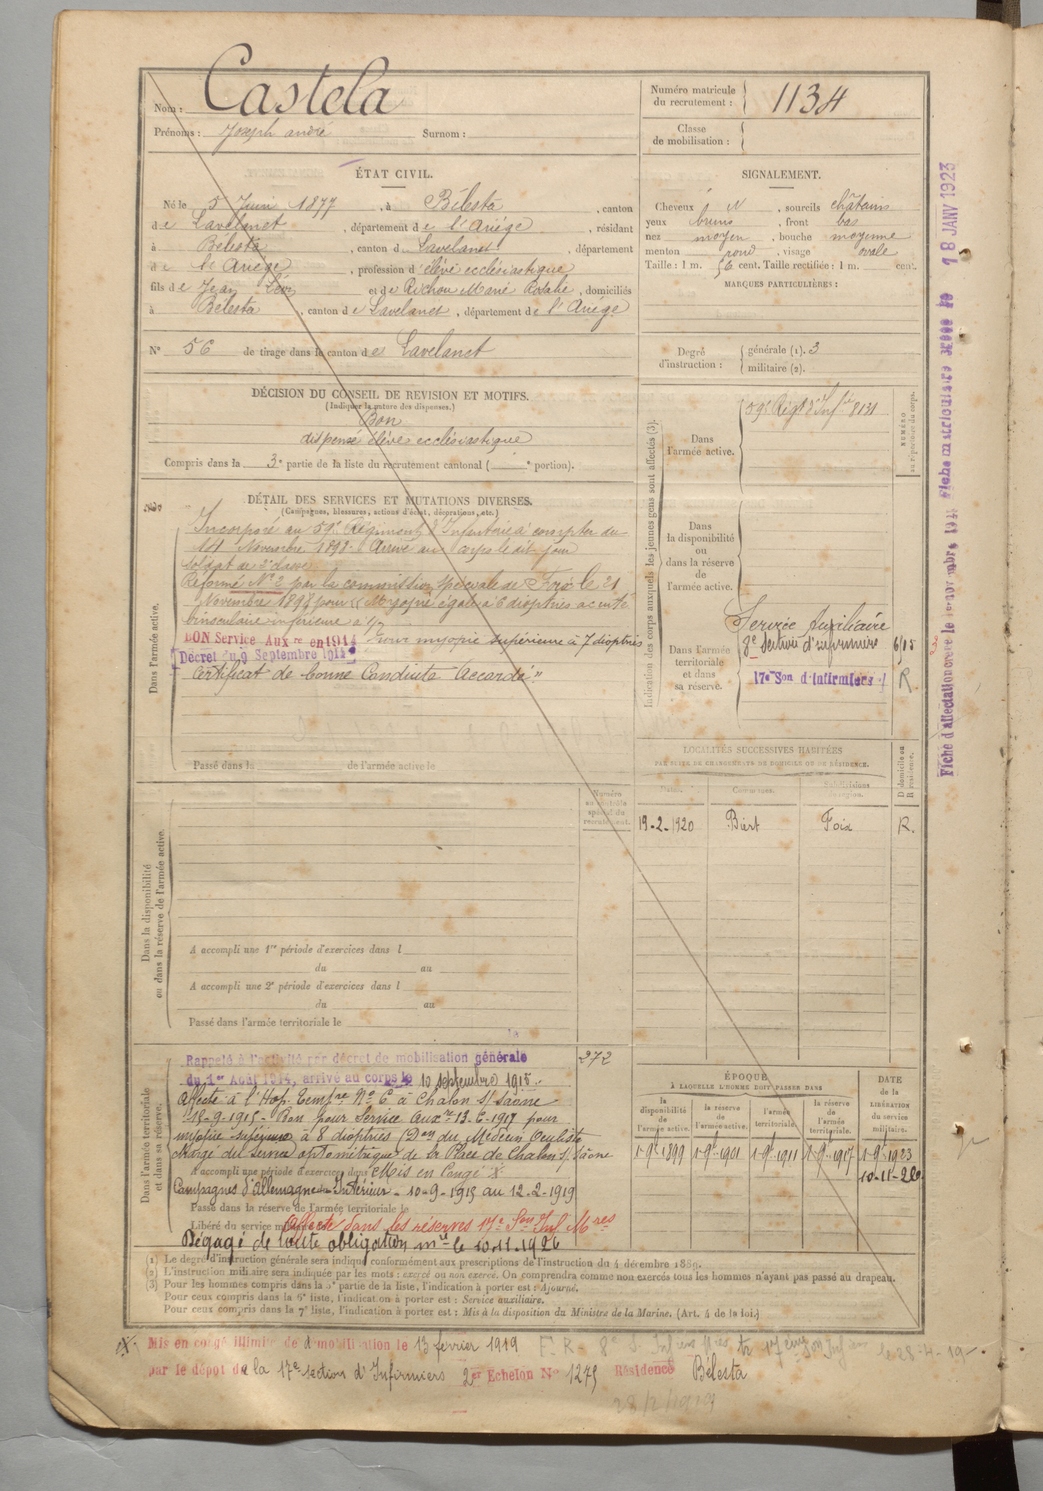 Nom : Castela
Prénoms : Joseph andré Surnom :
Numéro matricule
du recrutement : 1134
Classe
de mobilisation :
ÉTAT CIVIL.
Né le 5 Juin 1877, à Bélesta, canton
de Lavelanet, département de l'Ariége, résidant
à Bélesta, canton de Lavelanet, département
de l'Ariége, profession d'élève ecclésiastique
fils de Jean et de Marie Rosalie, domiciliés
à Bélesta, canton de Lavelanet, département de l'Ariége
N° 56 de tirage dans le canton de Lavelanet
SIGNALEMENT.
Cheveux N, sourcils châtains
yeux bruns, front bas
nez moyen, bouche moyenne
menton rond, visage ovale
Taille : 1 m. 56 cent. Taille rectifiée : 1 m. cent.
MARQUES PARTICULIÈRES :
Degré
d'instruction :
générale (1). 3
militaire (2).
DÉCISION DU CONSEIL DE REVISION ET MOTIFS.
(Indiquer la nature des dispenses.)
Bon
dispensé élève ecclésiastique
Compris dans la 3e partie de la liste du recrutement cantonal ( e portion).
DÉTAIL DES SERVICES ET MUTATIONS DIVERSES.
(Campagnes, blessures, actions d'éclat, décorations, etc.)
Dans l'armée active.
Incorporé au 59e Régiment d'Infanterie à compter du
Novembre 1898. Arrivé au Corps le dit jour
soldat de 2e classe
Réformé N° 2 par la commission spéciale de Foix le 21
Novembre 1898 pour Myopie égale à 6 dioptries acuité
binoculaire inférieure à 1/2
BON Service Auxre en 1914 pour myopie supérieure à 7 dioptries
Décret du 9 Septembre 1914
Certificat de bonne Conduite "Accordé"
Passé dans la de l'armée active le
Indication des corps auxquels les jeunes gens sont affectés (3).
NUMÉRO
au répertoire du corps.
Dans
l'armée active.
59e Régt d'Infie 8131
Dans
la disponibilité
ou
dans la réserve
de
l'armée active.
Dans l'armée
territoriale
et dans
sa réserve.
Service Auxiliaire
8e Section d'infirmiers 6/15
17e Son d'Infirmiers R
Fiche d'affectation créée le novembre
Fiche matriculaire créée le 18 JANV 1923
LOCALITÉS SUCCESSIVES HABITÉES
PAR SUITE DE CHANGEMENTS DE DOMICILE OU DE RÉSIDENCE.
Dates. Communes. Subdivisions de région. D domicile ou R résidence.
19-2-1920 Biert Foix R.
Numéro
au contrôle
spécial du
recrutement.
Dans la disponibilité
ou dans la réserve de l'armée active.
A accompli une 1re période d'exercices dans l
du au
A accompli une 2e période d'exercices dans l
du au
Passé dans l'armée territoriale le
Dans l'armée territoriale
et dans sa réserve.
Rappelé à l'activité par décret de mobilisation générale 272
du 1er Août 1914, arrivé au corps le 10 septembre 1915.
Affecté à l'Hop. Tempre N° 6 à Chalon s/ Saône
18-9-1915 - Bon pour Service Auxre 13-6-1917 pour
myopie supérieure à 8 dioptries du Médecin Oculiste
chargé du service optométrique de la Place de Chalon s/ Saône
A accompli une période d'exercices dans Mis en Congé X
Campagnes d'allemagne Intérieur - 10-9-1915 au 12-2-1919
Passé dans la réserve de l'armée territoriale le
Libéré du service militaire Affecté dans les réserves 17e Son Inf Mres
Dégagé de toute obligation mre le 10.11.1926
ÉPOQUE
À LAQUELLE L'HOMME DOIT PASSER DANS
la
disponibilité
de
l'armée active.
la réserve
de
l'armée active.
l'armée
territoriale.
la réserve
de
l'armée
territoriale.
DATE
de la
LIBÉRATION
du service
militaire.
1 9bre 1899 1 9bre 1901 1 9bre 1911 1 9bre 1917 1 9bre 1923
10-11-26.
(1) Le degré d'instruction générale sera indiqué conformément aux prescriptions de l'instruction du 4 décembre 1889.
(2) L'instruction militaire sera indiquée par les mots : exercé ou non exercé. On comprendra comme non exercés tous les hommes n'ayant pas passé au drapeau.
(3) Pour les hommes compris dans la 5e partie de la liste, l'indication à porter est : Ajourné.
Pour ceux compris dans la 6e liste, l'indication à porter est : Service auxiliaire.
Pour ceux compris dans la 7e liste, l'indication à porter est : Mis à la disposition du Ministre de la Marine. (Art. 4 de la loi.)
X Mis en congé illimité de démobilisation le 13 février 1919
par le dépôt de la 17e section d'Infirmiers 2er Echelon N° 1275 Résidence Bélesta
28/2/1919